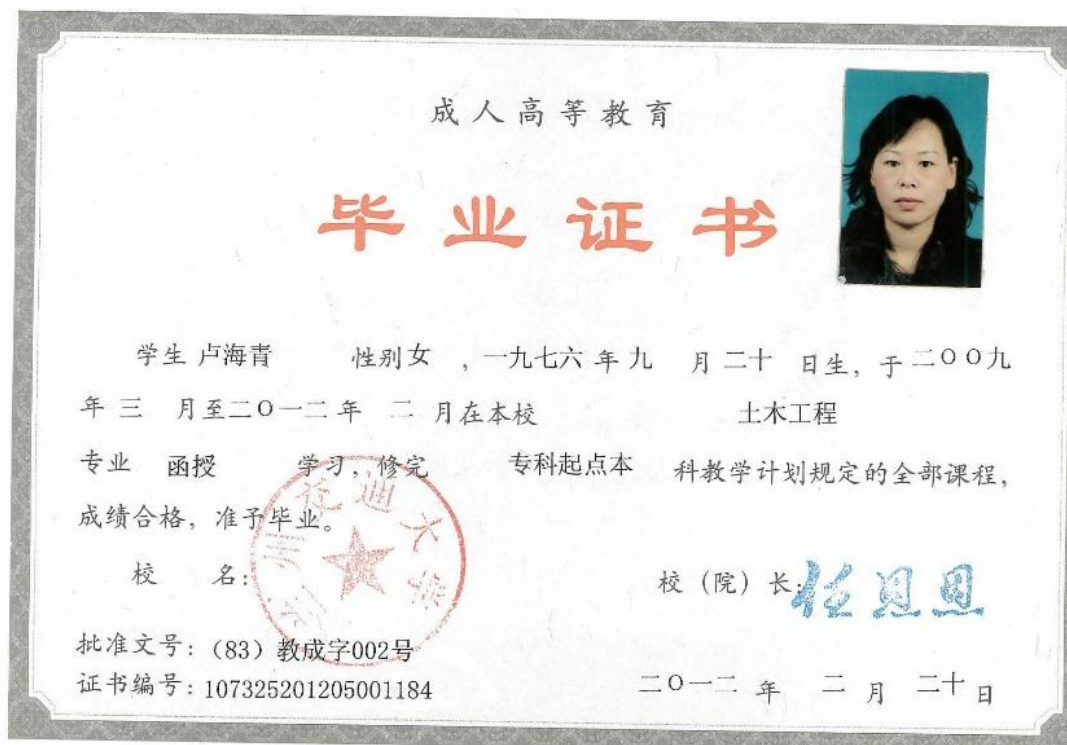 成人高等教育
毕业证书
学生 卢海青 性别 女 , 一九七六 年 九 月 二十 日生, 于 二〇〇九
年 三 月至 二〇一二 年 二 月在本校 土木工程
专业 函授 学习, 修完 专科起点本 科教学计划规定的全部课程,
成绩合格, 准予毕业。
兰州交通大学
校 名: 校（院）长: 任恩恩
批准文号: （83）教成字002号
证书编号: 107325201205001184 二〇一二 年 二 月 二十 日